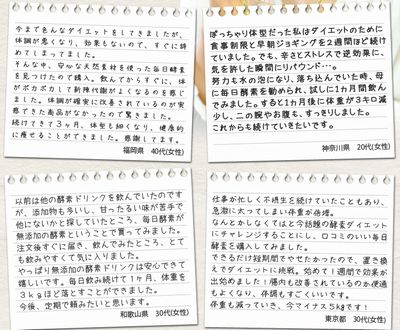 今まで色んなダイエットをしてきましたが、
体調が悪くなり、効果もないので、すぐに諦
めてしまってました。
そんな中、安心な天然素材を使った毎日酵素
を見つけたので購入。飲んでからすぐに、体
がポカポカして新陳代謝がよくなるのを感じ
ました。体調が確実に改善されているのが実
感できた商品がなかったので驚きました。
続けてきて3ヶ月、体型も細くなり、健康的
に痩せることができました。感謝してます。
福岡県　40代(女性)
ぽっちゃり体型だった私はダイエットのために
食事制限と早朝ジョギングを2週間ほど続け
ていました。でも、辛さとストレスで逆効果に、
気を許した瞬間にリバウンド…。
努力も水の泡になり、落ち込んでいた時、母
に毎日酵素を勧められ、試しに1ヵ月間飲ん
でみました。すると1ヵ月後に体重が3キロ減
少し、二の腕やお腹も、すっきりしました。
これからも続けていきたいです。
神奈川県　20代(女性)
以前は他の酵素ドリンクを飲んでいたのです
が、添加物も多いし、甘ったるい味が苦手で
他にないかと探していたところ、毎日酵素が
無添加の酵素ということで買ってみました。
注文後すぐに届き、飲んでみたところ、とて
も飲みやすくて気に入りました。
やっぱり無添加の酵素ドリンクは安心できて
嬉しいです。毎日飲み続けて1ヶ月、体重を
3kgほど落とすことができました。
今後、定期で頼みたいと思います。
和歌山県　30代(女性)
仕事が忙しく不規則な生活を続けていたこともあり、
急激に太ってしまい体重が倍増。
なんとかしなくてはと今話題の酵素ダイエット
にチャレンジすることにし、口コミのいい毎日
酵素を購入してみました。
できるだけ短期間でやせたかったので、置き換
えでダイエットに挑戦。初めて1週間で効果が
出始めました！腸内も改善されているのか便通
もよくなり、体調もすごくいいです。
体重も減っていき、今マイナス5kgです！
東京都　30代(女性)